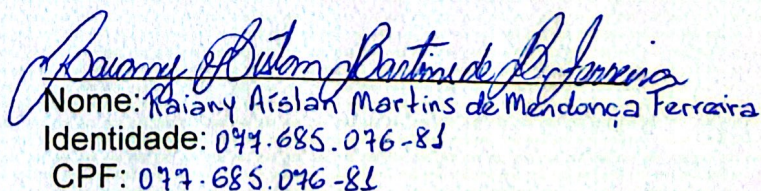 Raiany Aislan Martins de M. Ferreira
Nome: Raiany Aislan Martins de Mendonça Ferreira
Identidade: 077.685.076-81
CPF: 077.685.076-81